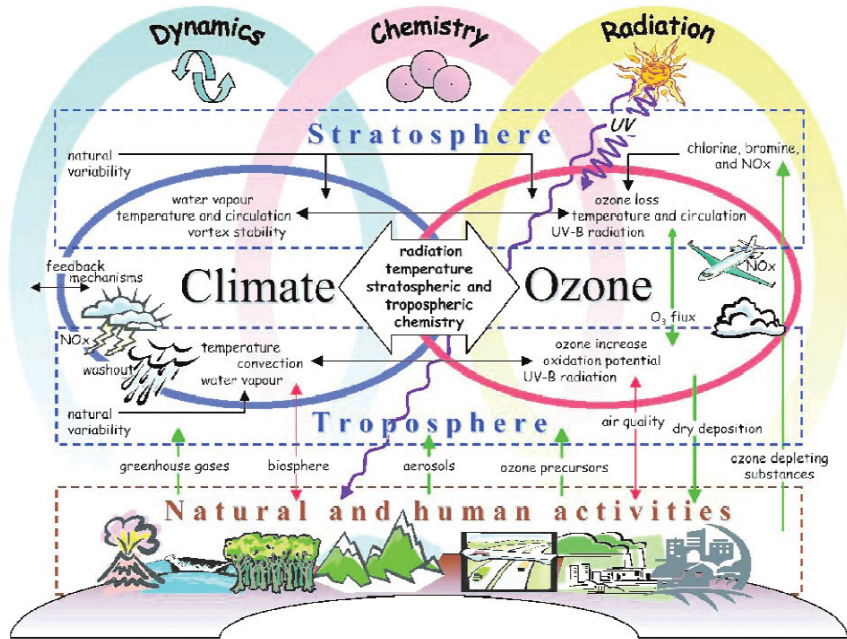 Dynamics
Chemistry
Radiation
UV
Stratosphere
natural
variability
chlorine, bromine,
and NOx
water vapour
temperature and circulation
vortex stability
ozone loss
temperature and circulation
UV-B radiation
feedback
mechanisms
Climate
radiation
temperature
stratospheric and
tropospheric
chemistry
Ozone
NOx
O₃ flux
NOx
washout
temperature
convection
water vapour
ozone increase
oxidation potential
UV-B radiation
natural
variability
Troposphere
air quality
dry deposition
greenhouse gases
biosphere
aerosols
ozone precursors
ozone depleting
substances
Natural and human activities